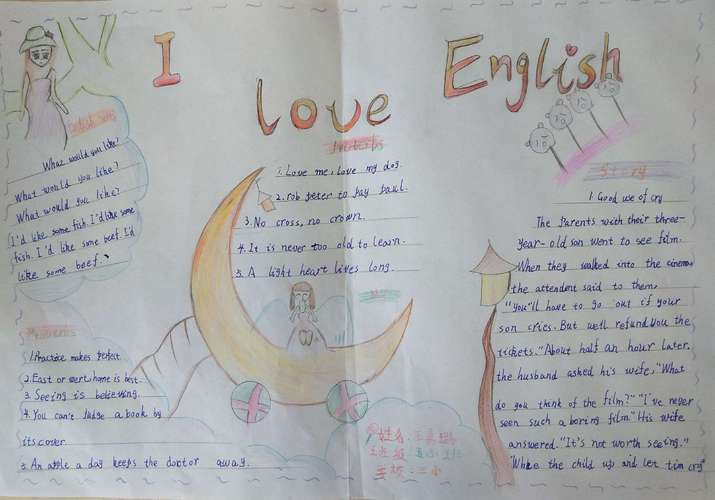 I
Love
English
What would you like?
What would you like?
What would you like?
I'd like some fish. I'd like some
fish. I'd like some beef. I'd
like some beef.
1. Practice makes perfect.
2. East or west, home is best.
3. Seeing is believing.
4. You can't judge a book by
its cover
5. An apple a day keeps the doctor away.
Proverbs
1. Love me, love my dog.
2. rob peter to pay paul.
3. No cross, no crown.
4. It is never too old to learn.
5. A light heart lives long.
姓名:王
班级:
学校:三小
Story
1. Good use of cry
The Parents with their three-
year-old son went to see film.
When they walked into the cinema
the attendent said to them.
"you'll have to go out if your
son cries. But we'll refund you the
tickets." About half an hour later.
the husband asked his wife, "What
do you think of the film?" "I've never
seen such a boring film." His wife
answered. "It's not worth seeing."
"Whke the child up and let tim cry"